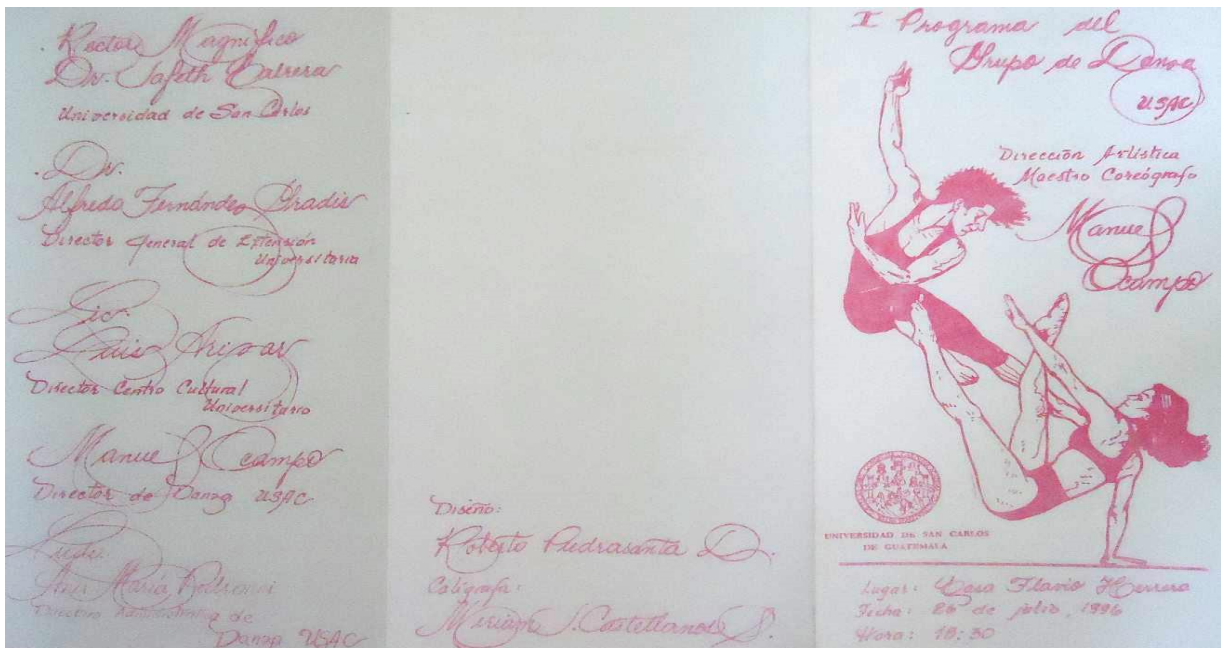 . Rector Magnífico
Dr. Jafeth Cabrera
Universidad de San Carlos
. Dr.
Alfredo Fernández
Director General de Extensión
Universitaria
Lic.
Luis
Director Centro Cultural
Universitario
Manuel Ocampo
Director de Danza USAC
María
de
Danza USAC
Diseño:
Roberto Piedrasanta D.
Calígrafa:
Miriam J. Castellanos S.
I Programa del
Grupo de Danza
USAC
Dirección Artística
Maestro Coreógrafo
Manuel
Ocampo
UNIVERSIDAD DE SAN CARLOS
DE GUATEMALA
Lugar: Casa Flavio Herrera
Fecha: 26 de julio, 1996
Hora: 18:30